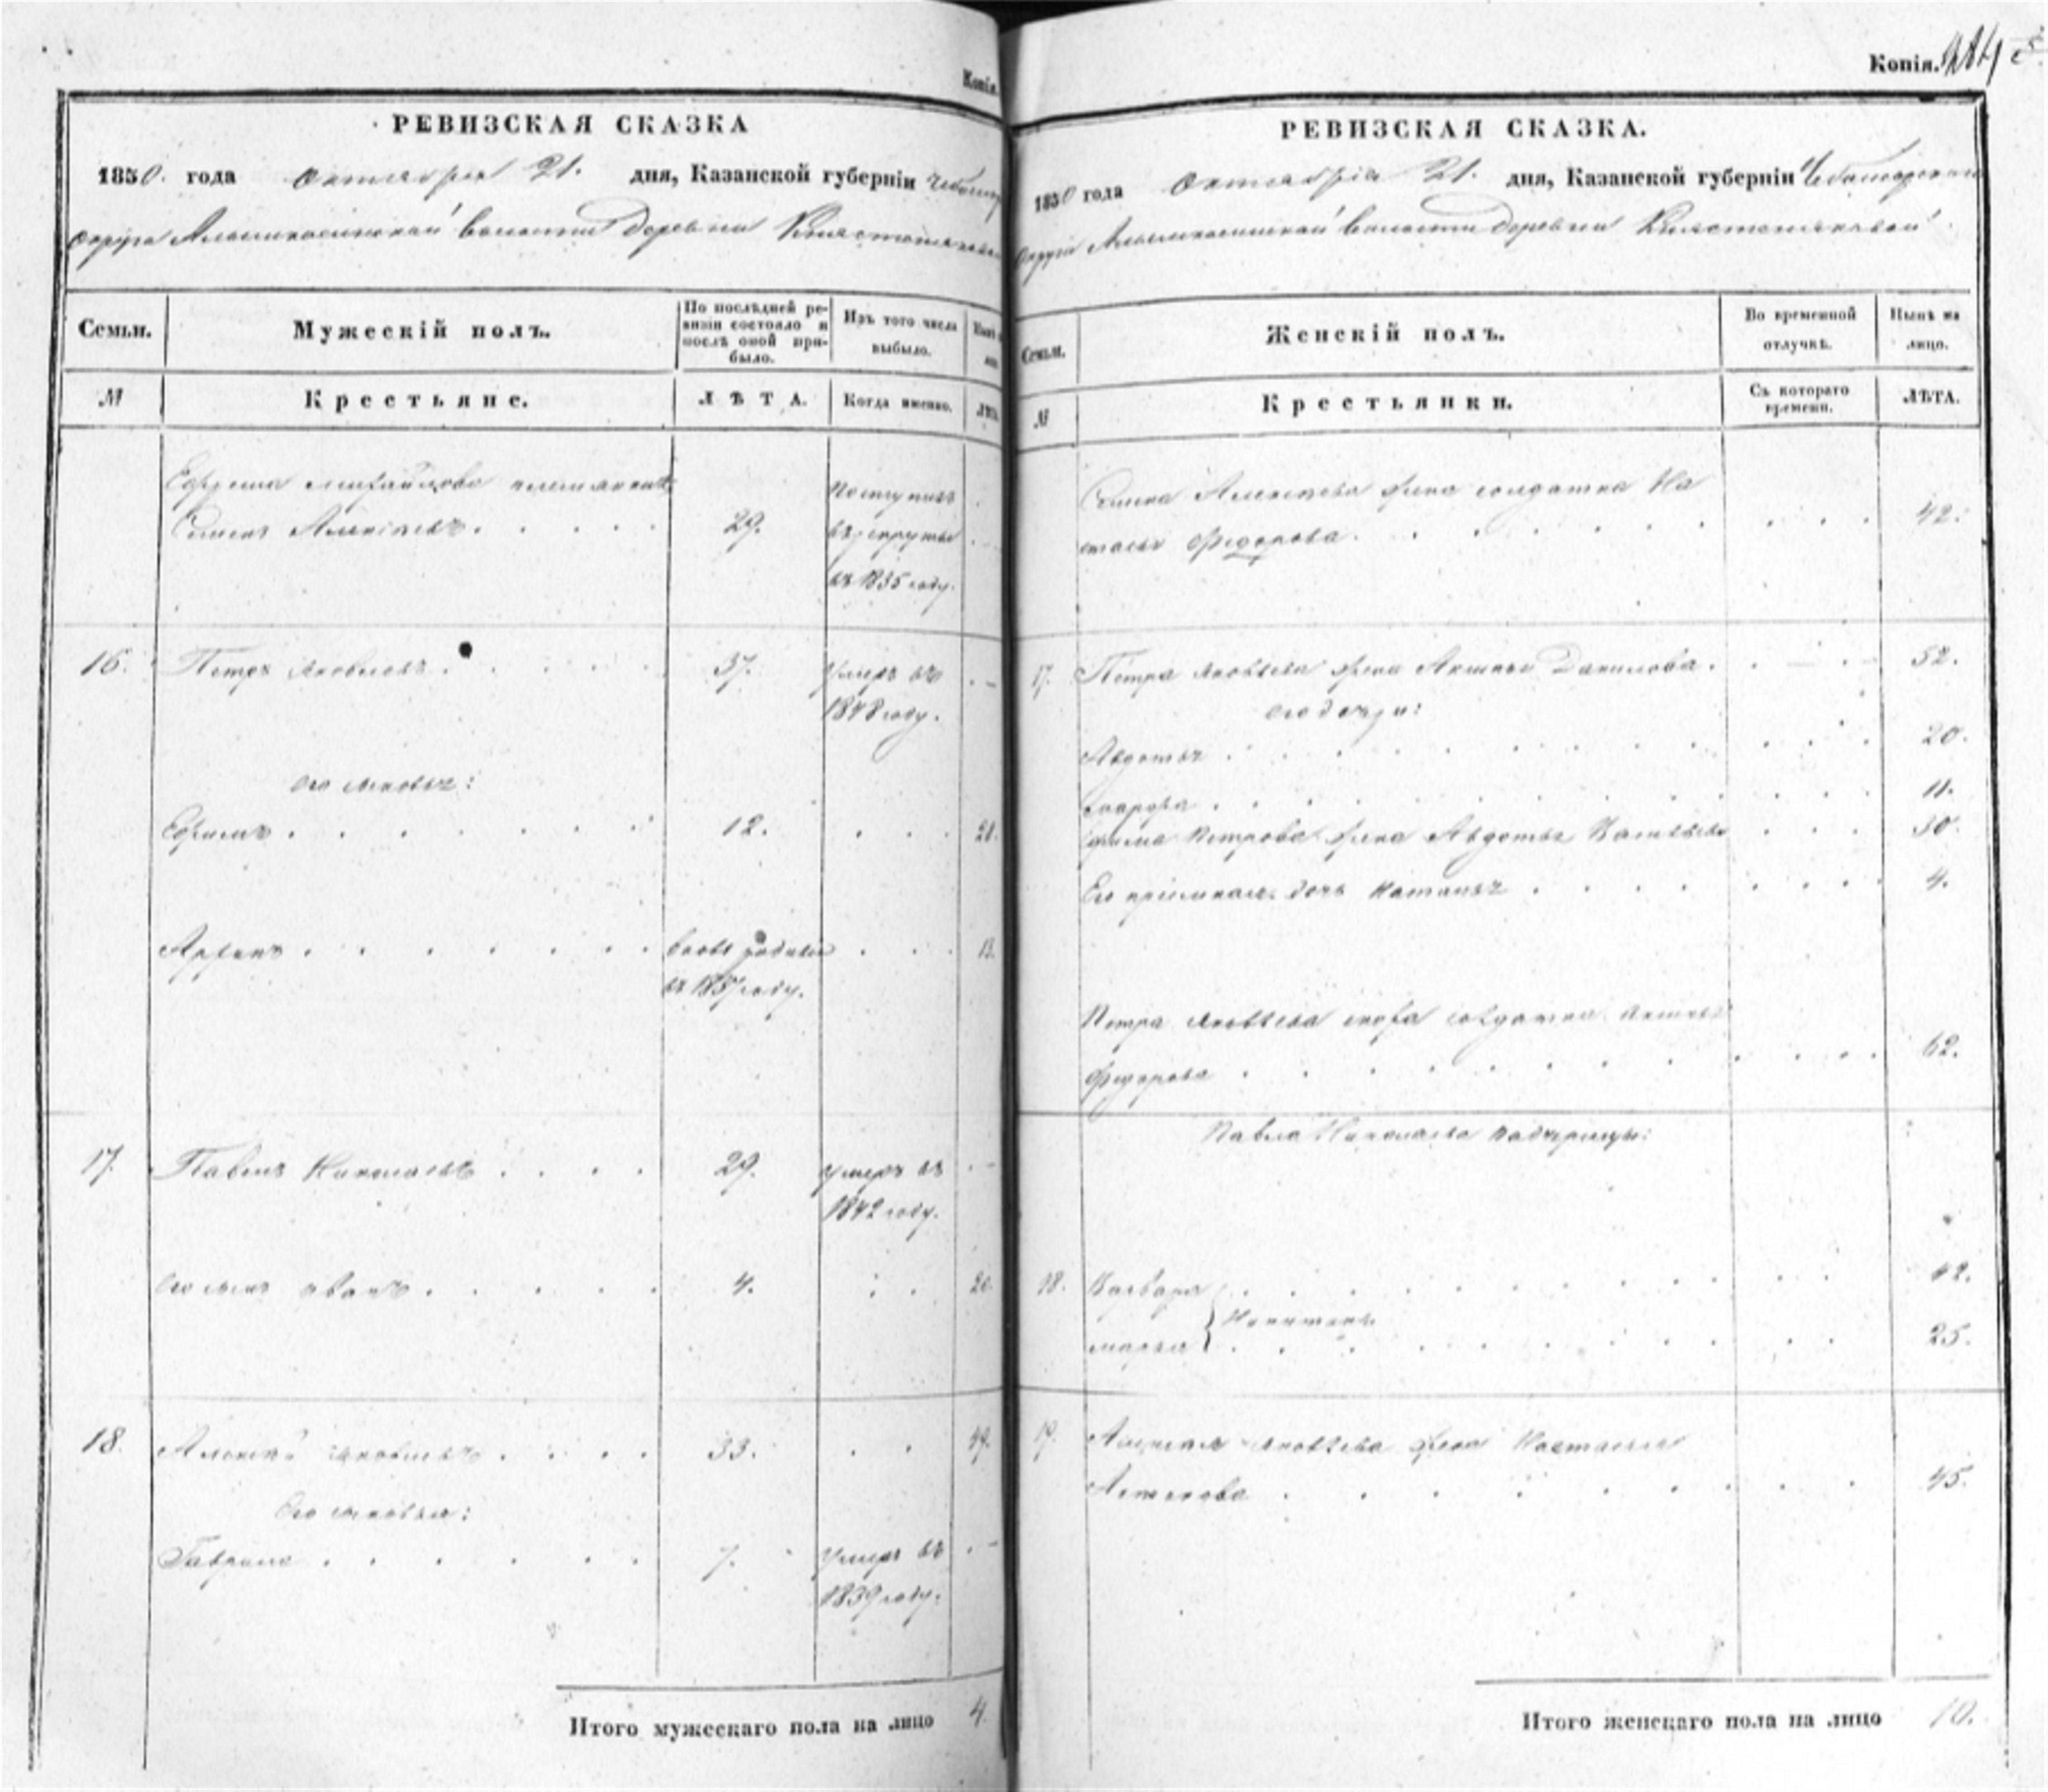 Копія.
РЕВИЗСКАЯ СКАЗКА
1850. года октября 21. дня, Казанской губерніи
округа волости деревни
Семьи.
Мужескій полъ.
По послѣдней ре-
визіи состояло и
послѣ оной при-
было.
Изъ того числа
выбыло.
№
Крестьяне.
ЛѢТА.
Когда именно.
Ефрема Михайлова племянникъ
Семенъ Алексѣевъ
29.
Поступилъ
въ рекруты
въ 1835 году.
16.
Петръ Яковлевъ
37.
Умеръ въ
1848 году.
Его сыновья:
Ефимъ
12.
28.
вновь родился
въ 1837 году.
13.
17.
Павелъ Николаевъ
29.
Умеръ въ
1842 году.
Его сынъ Иванъ
4.
20.
18.
Алексѣй Яковлевъ
33.
49.
Его сыновья:
Гаврило
7.
Умеръ въ
1839 году.
Итого мужескаго пола на лицо 4.
Копія.
РЕВИЗСКАЯ СКАЗКА.
1850 года октября 21. дня, Казанской губерніи Чебоксарскаго
округа волости деревни
Семьи.
Женскій полъ.
Во временной
отлучкѣ.
Нынѣ на
лицо.
№
Крестьянки.
Съ котораго
времени.
ЛѢТА.
Семена Алексѣева жена солдатка На
стасья Федорова.
42.
17.
Петра Яковлева жена Данилова.
52.
его дочери:
Авдотья
20.
11.
Петрова жена Авдотья
30.
Его дочь Наталья
4.
Петра Яковлева сноха солдатка
Федорова
62.
Павла Николаева падчерицы:
18.
Варвара
42.
Марья
25.
19.
Алексѣя Яковлева жена Настасья
45.
Итого женскаго пола на лицо 10.